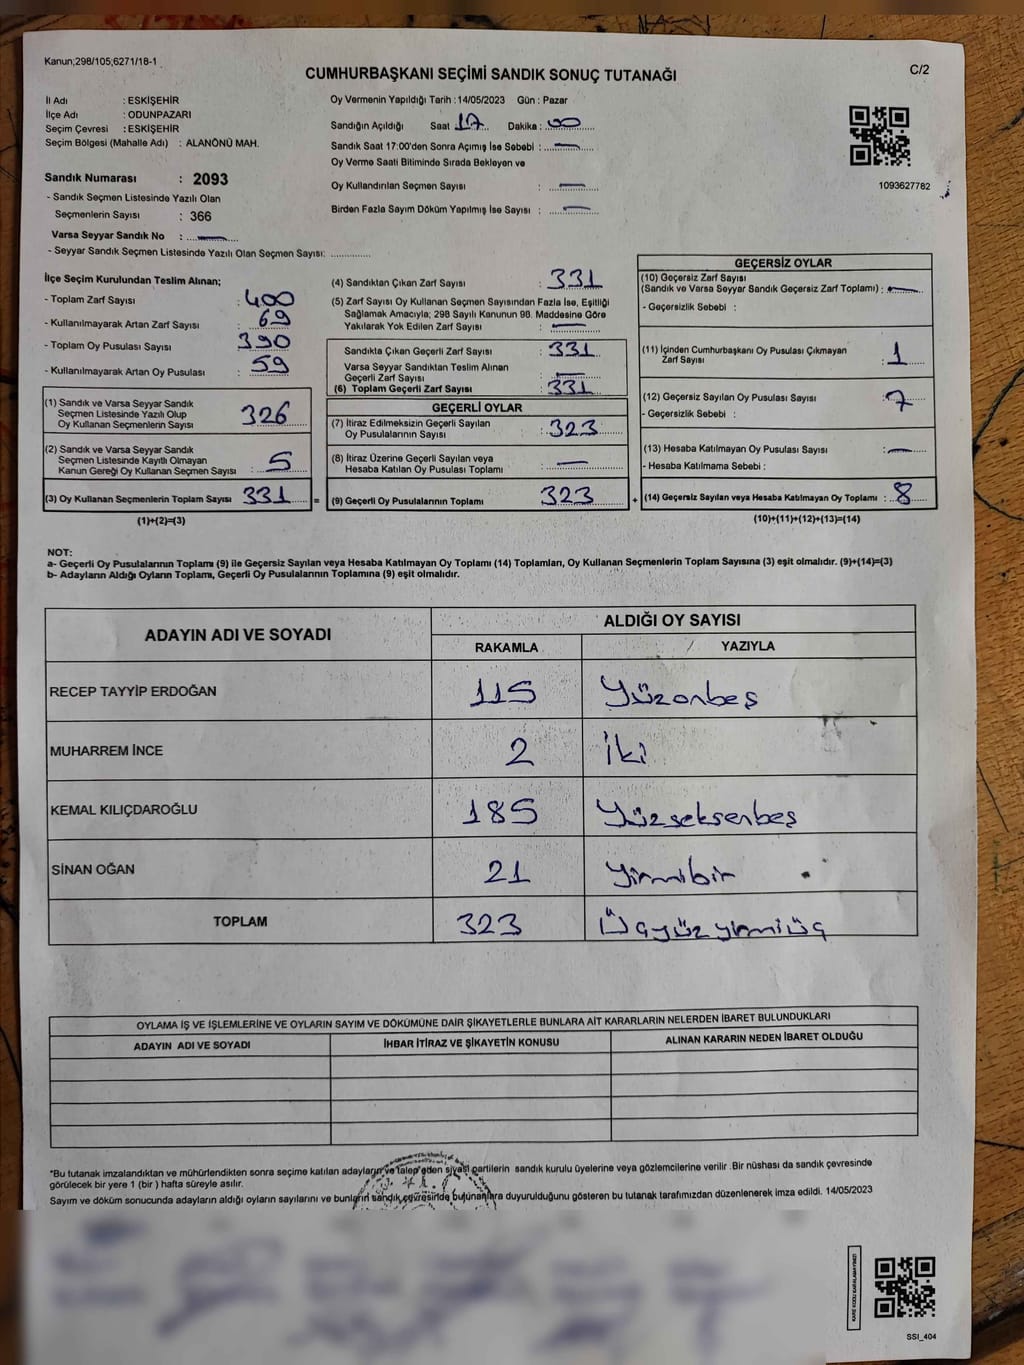 Kanun;298/105;6271/18-1
C/2
CUMHURBAŞKANI SEÇİMİ SANDIK SONUÇ TUTANAĞI
İl Adı : ESKİŞEHİR
İlçe Adı : ODUNPAZARI
Seçim Çevresi : ESKİŞEHİR
Seçim Bölgesi (Mahalle Adı) : ALANÖNÜ MAH.
Sandık Numarası : 2093
- Sandık Seçmen Listesinde Yazılı Olan
Seçmenlerin Sayısı : 366
Varsa Seyyar Sandık No :
- Seyyar Sandık Seçmen Listesinde Yazılı Olan Seçmen Sayısı:
Oy Vermenin Yapıldığı Tarih : 14/05/2023 Gün : Pazar
Sandığın Açıldığı Saat 17 Dakika : 00
Sandık Saat 17:00'den Sonra Açımış İse Sebebi : —
Oy Verme Saati Bitiminde Sırada Bekleyen ve
Oy Kullandırılan Seçmen Sayısı : —
Birden Fazla Sayım Döküm Yapılmış İse Sayısı : —
1093627782
İlçe Seçim Kurulundan Teslim Alınan;
- Toplam Zarf Sayısı : 400
- Kullanılmayarak Artan Zarf Sayısı : 69
- Toplam Oy Pusulası Sayısı : 390
- Kullanılmayarak Artan Oy Pusulası : 59
(1) Sandık ve Varsa Seyyar Sandık
Seçmen Listesinde Yazılı Olup
Oy Kullanan Seçmenlerin Sayısı 326
(2) Sandık ve Varsa Seyyar Sandık
Seçmen Listesinde Kayıtlı Olmayan
Kanun Gereği Oy Kullanan Seçmen Sayısı : 5
(3) Oy Kullanan Seçmenlerin Toplam Sayısı 331 =
(1)+(2)=(3)
(4) Sandıktan Çıkan Zarf Sayısı : 331
(5) Zarf Sayısı Oy Kullanan Seçmen Sayısından Fazla İse, Eşitliği
Sağlamak Amacıyla; 298 Sayılı Kanunun 98. Maddesine Göre
Yakılarak Yok Edilen Zarf Sayısı : —
Sandıkta Çıkan Geçerli Zarf Sayısı : 331
Varsa Seyyar Sandıktan Teslim Alınan
Geçerli Zarf Sayısı : —
(6) Toplam Geçerli Zarf Sayısı : 331
GEÇERLİ OYLAR
(7) İtiraz Edilmeksizin Geçerli Sayılan
Oy Pusulalarının Sayısı : 323
(8) İtiraz Üzerine Geçerli Sayılan veya
Hesaba Katılan Oy Pusulası Toplamı : —
(9) Geçerli Oy Pusulalarının Toplamı 323 +
GEÇERSİZ OYLAR
(10) Geçersiz Zarf Sayısı
(Sandık ve Varsa Seyyar Sandık Geçersiz Zarf Toplamı) : —
- Geçersizlik Sebebi :
(11) İçinden Cumhurbaşkanı Oy Pusulası Çıkmayan
Zarf Sayısı : 1
(12) Geçersiz Sayılan Oy Pusulası Sayısı : 7
- Geçersizlik Sebebi :
(13) Hesaba Katılmayan Oy Pusulası Sayısı : —
- Hesaba Katılmama Sebebi :
(14) Geçersiz Sayılan veya Hesaba Katılmayan Oy Toplamı : 8
(10)+(11)+(12)+(13)=(14)
NOT:
a- Geçerli Oy Pusulalarının Toplamı (9) ile Geçersiz Sayılan veya Hesaba Katılmayan Oy Toplamı (14) Toplamları, Oy Kullanan Seçmenlerin Toplam Sayısına (3) eşit olmalıdır. (9)+(14)=(3)
b- Adayların Aldığı Oyların Toplamı, Geçerli Oy Pusulalarının Toplamına (9) eşit olmalıdır.
ADAYIN ADI VE SOYADI
ALDIĞI OY SAYISI
RAKAMLA YAZIYLA
RECEP TAYYİP ERDOĞAN 115 Yüzonbeş
MUHARREM İNCE 2 İki
KEMAL KILIÇDAROĞLU 185 Yüzseksenbeş
SİNAN OĞAN 21 Yirmibir
TOPLAM 323 Üçyüzyirmiüç
OYLAMA İŞ VE İŞLEMLERİNE VE OYLARIN SAYIM VE DÖKÜMÜNE DAİR ŞİKAYETLERLE BUNLARA AİT KARARLARIN NELERDEN İBARET BULUNDUKLARI
ADAYIN ADI VE SOYADI İHBAR İTİRAZ VE ŞİKAYETİN KONUSU ALINAN KARARIN NEDEN İBARET OLDUĞU
*Bu tutanak imzalandıktan ve mühürlendikten sonra seçime katılan adayların ve talep eden siyasi partilerin sandık kurulu üyelerine veya gözlemcilerine verilir .Bir nüshası da sandık çevresinde
görülecek bir yere 1 (bir ) hafta süreyle asılır.
Sayım ve döküm sonucunda adayların aldığı oyların sayılarını ve bunların sandık çevresinde bulunanlara duyurulduğunu gösteren bu tutanak tarafımızdan düzenlenerek imza edildi. 14/05/2023
KARE KODU KARALAMAYINIZ!
SSI_404